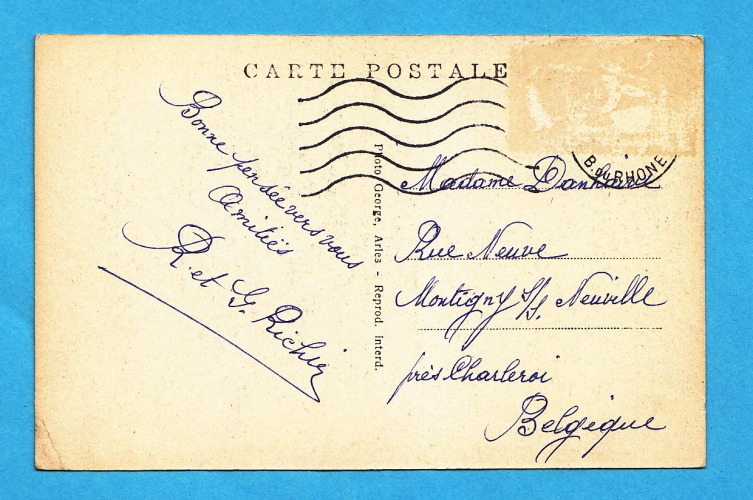 CARTE POSTALE
Bonne pensée vers vous
Amitiés
R. et G. Richir
Photo George, Arles - Reprod. Interd.
B. du RHONE
Madame
Rue Neuve
Montigny s/s. Neuville
près Charleroi
Belgique